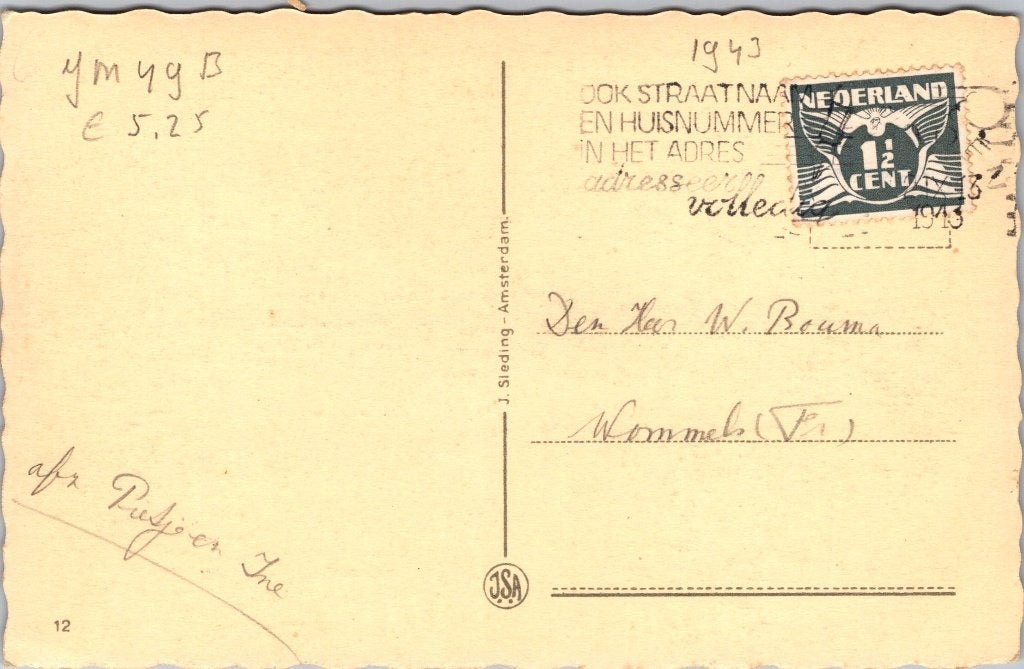 ymygB
€ 5,25
1943
OOK STRAATNAAM
EN HUISNUMMER
IN HET ADRES
adresseer
volledig
NEDERLAND
1½
CENT
1943
J. Sleding - Amsterdam.
Den Heer W. Bouma
Wommels (Fr.)
afz Pietje en Ine
J.S.A
12